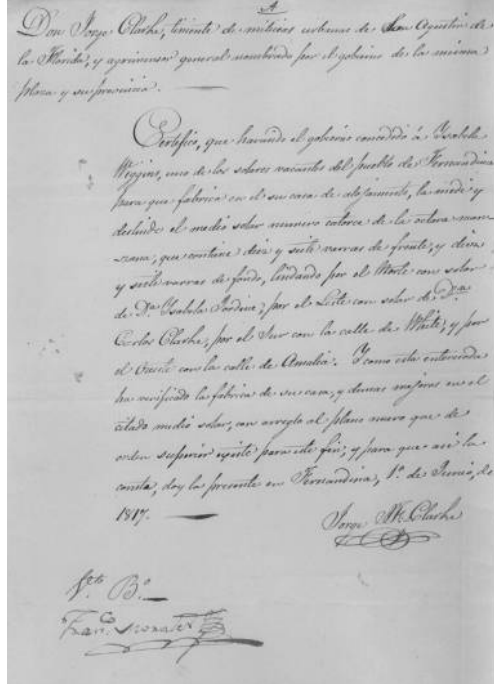 A
Don Jorge Clarke, teniente de milicias urbanas de San Agustin de
la Florida, y agrimensor general nombrado por el gobierno de la misma
plaza y su provincia.
Certifico, que haviendo el gobierno concedido á Isabela
Wiggins, uno de los solares vacantes del pueblo de Fernandina
para que fabrica en el su casa de alojamiento, la medí y
deslinde el medio solar numero catorce de la octava man-
zana, que contiene diez y siete varras de frente, y diez
y siete varras de fondo, lindando por el Norte con solar
de Dª Isabela Jardine; por el Leste con solar de
Carlos Clarke, por el Sur con la calle de White, y por
el Oueste con la calle de Amalia. Y como esta enterinada
ha verificado la fabrica de su casa, y demas mejoras en el
citado medio solar, con arreglo al plano nuevo que de
orden superior existe para este fin; y para que asi la
consta, doy la presente en Fernandina, 1º de Junio, de
1817.
Jorge J. F. Clarke
Vto. Bº
Franco Morales